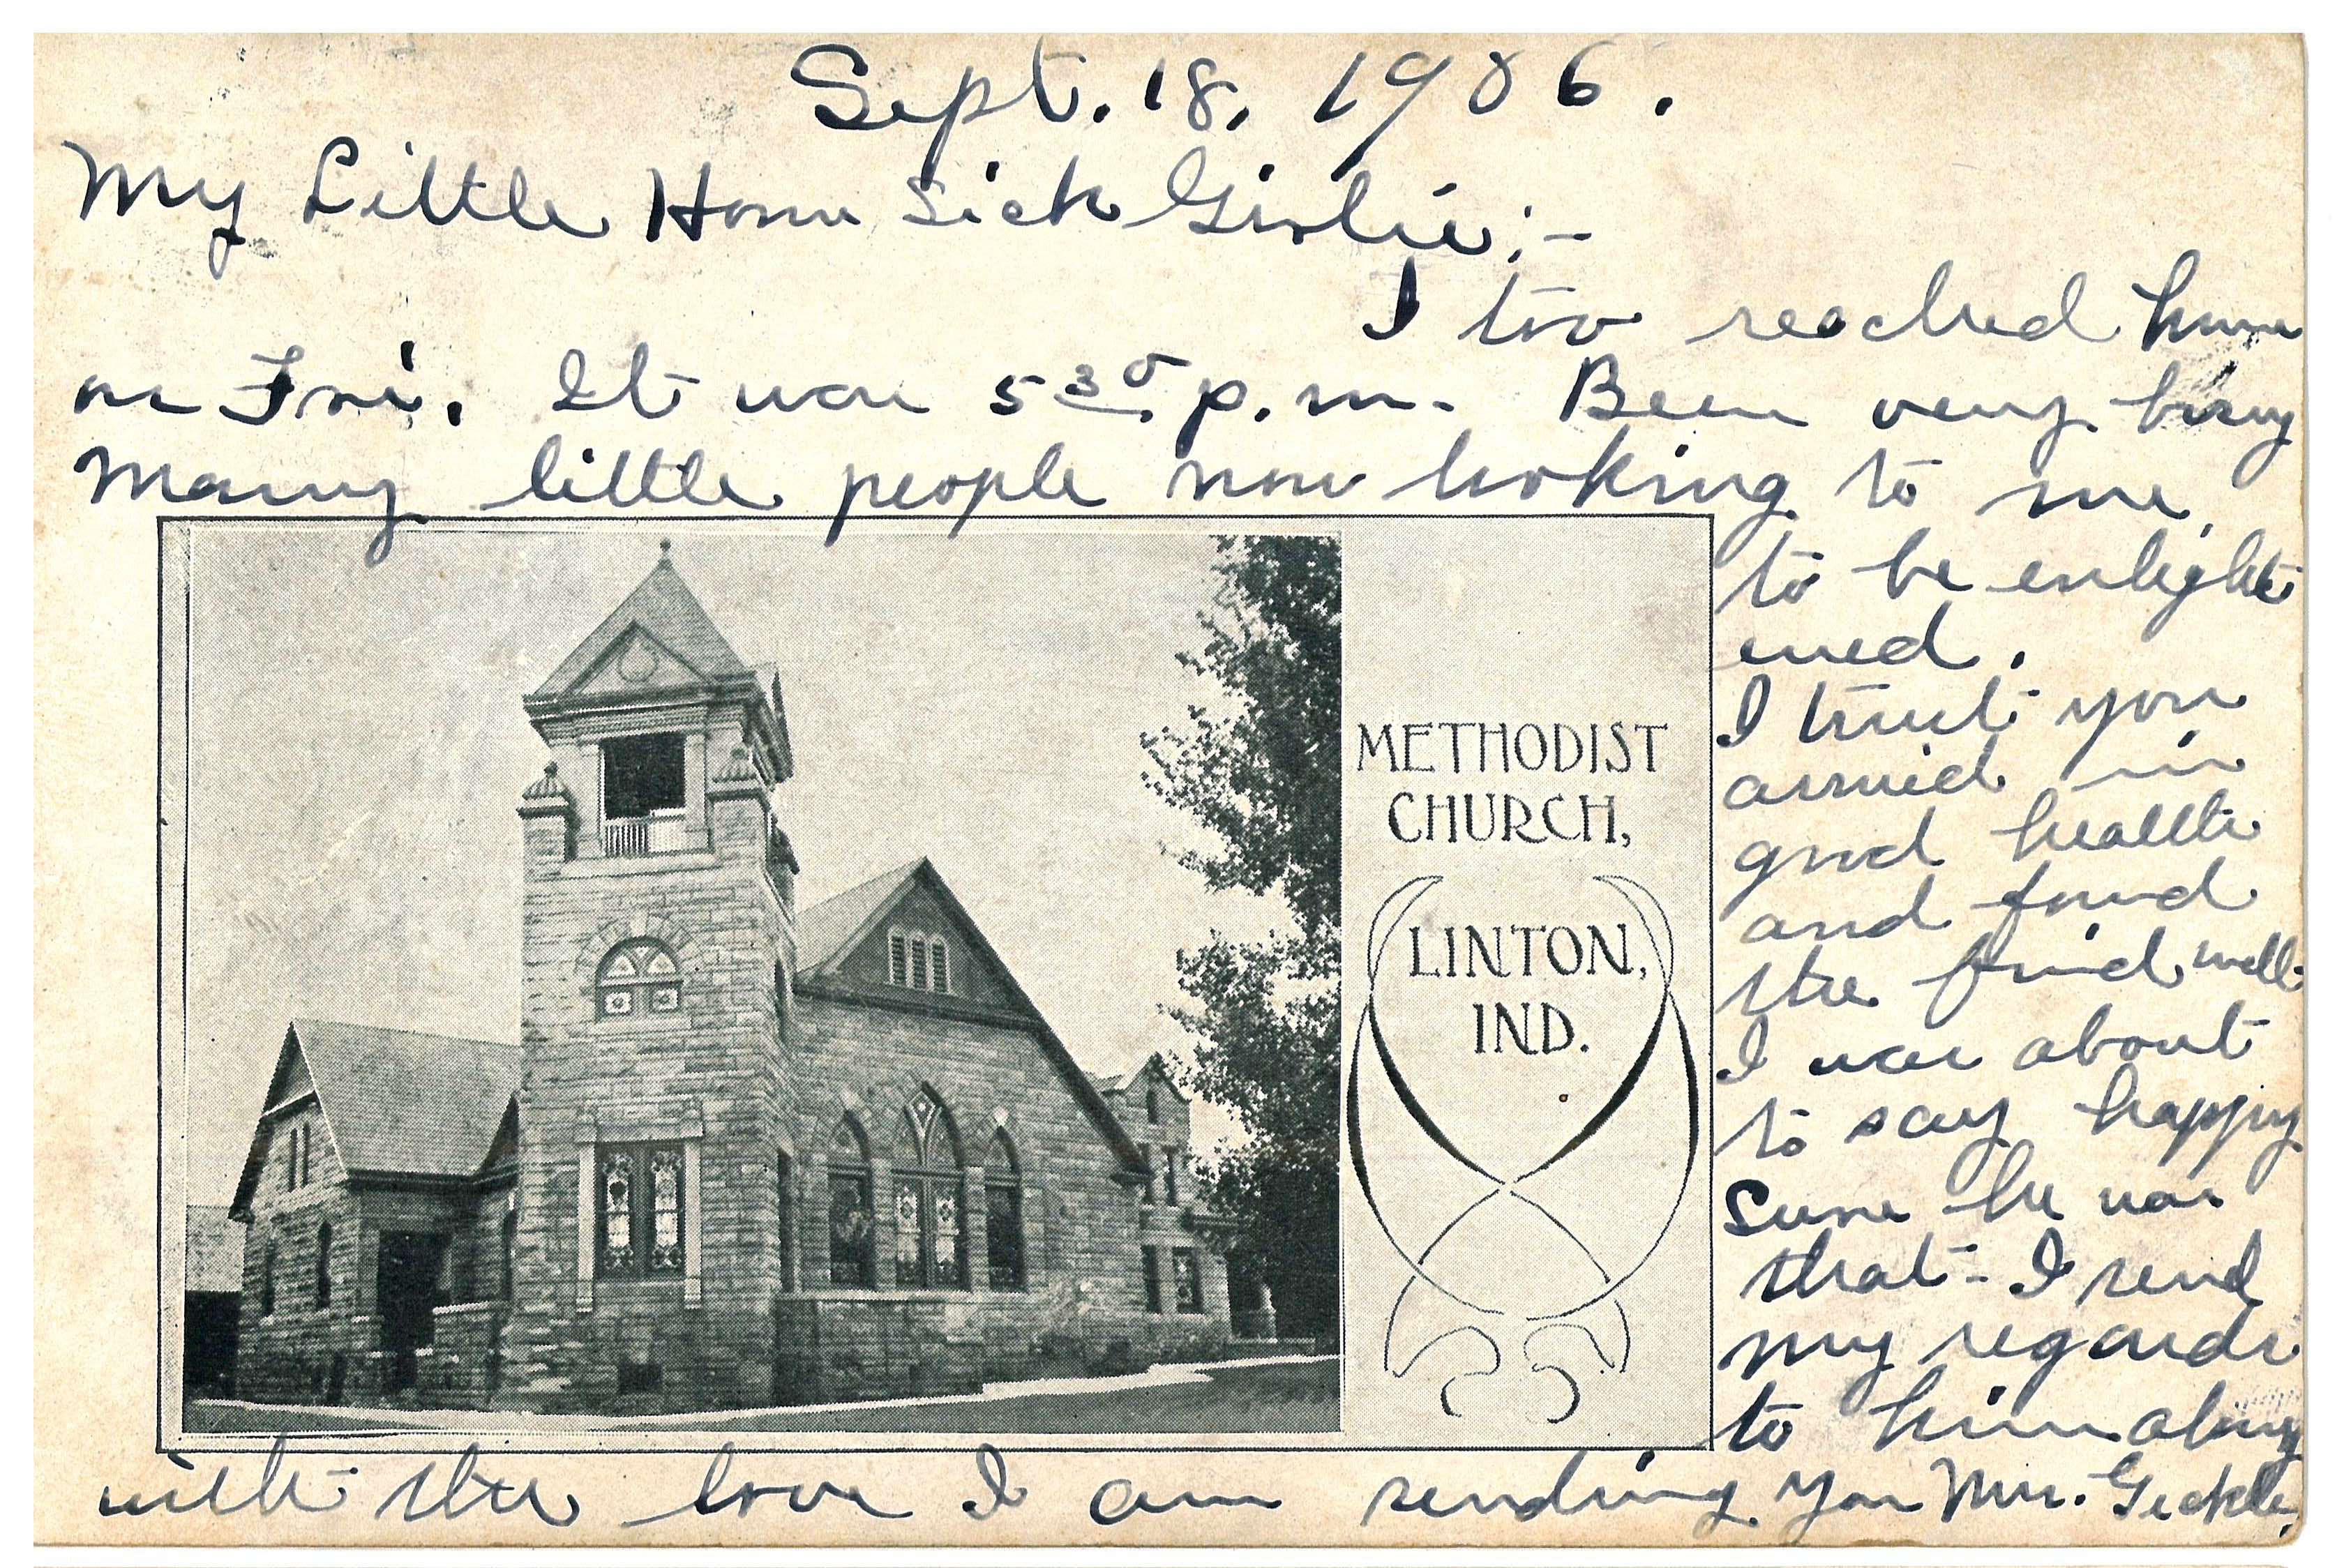 Sept. 18, 1906.
My Little Home Sick Girlie;-
I too reached home
on Fri. It was 5 30 p.m. Been very busy
Many little people now looking to me
to be enlight
ened.
I trust you
arrived in
good health
and found
the friend well
I was about
to say happy
Sure he was
that - I send
my regards
to him along
with the love I am sending you Mrs. Geckle,
METHODIST
CHURCH,
LINTON,
IND.